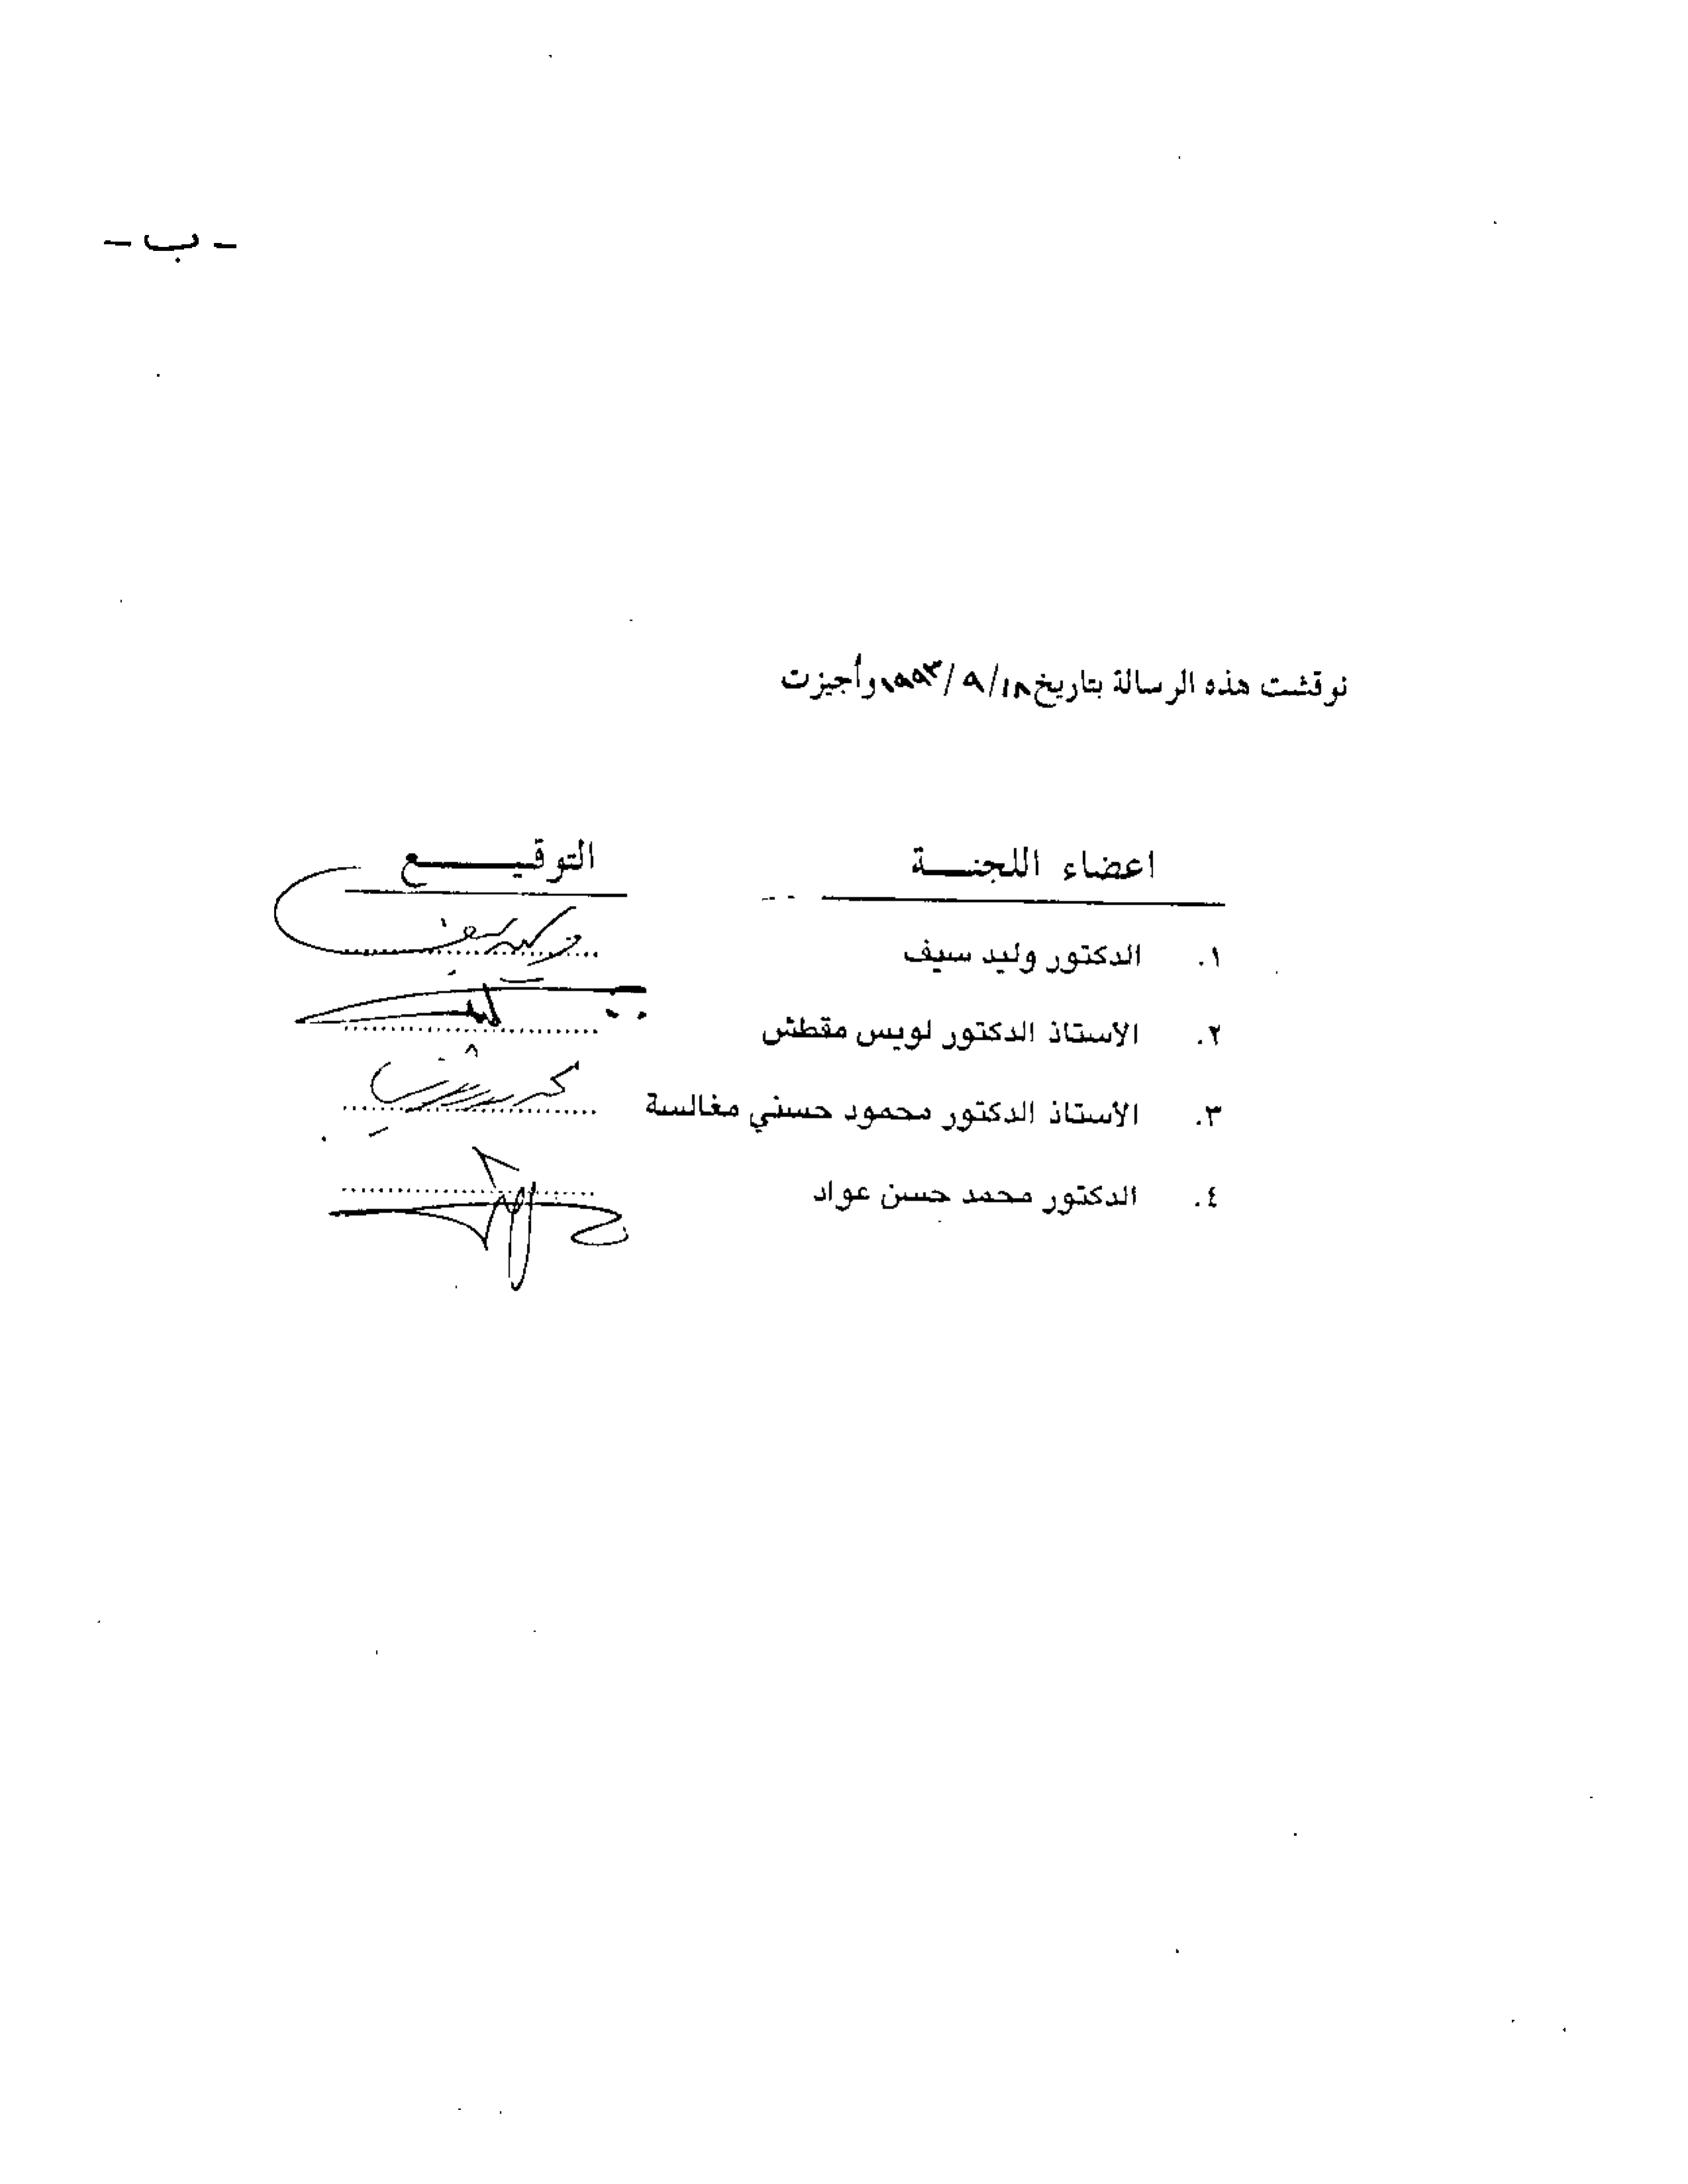 - ب -
نوقشت هذه الرسالة بتاريخ ١٨/ ٩/ ١٩٩٣ وأجيزت
اعضاء اللجنــة التوقيــــع
١. الدكتور وليد سيف
٢. الأستاذ الدكتور لويس مقطش
٣. الأستاذ الدكتور محمود حسني مغالسة
٤. الدكتور محمد حسن عواد